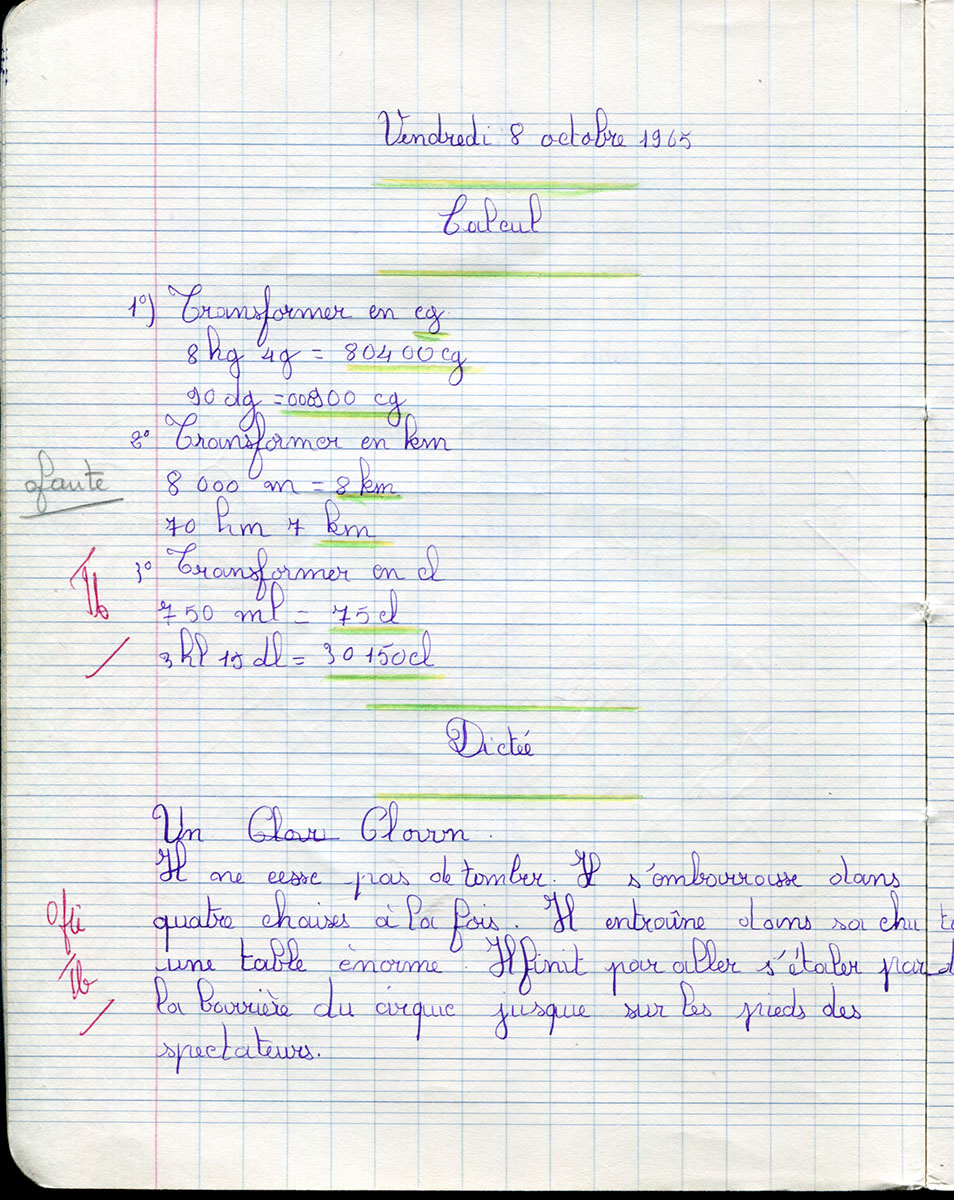 Vendredi 8 octobre 1965
Calcul
1°) Transformer en cg
8 hg 4g = 80400 cg
90 dg = 00900 cg
2° Transformer en km
faute
8 000 m = 8 km
70 hm 7 km
3° Transformer en cl
Tb
750 ml = 75 cl
3 hl 15 dl = 30 150 cl
Dictée
Un Clow Clown.
Il ne cesse pas de tomber. Il s'embarrasse dans
quatre chaises à la fois. Il entraîne dans sa chute
0 fte
une table énorme. Il finit par aller s'étaler par d
Tb
la barrière du cirque jusque sur les pieds des
spectateurs.